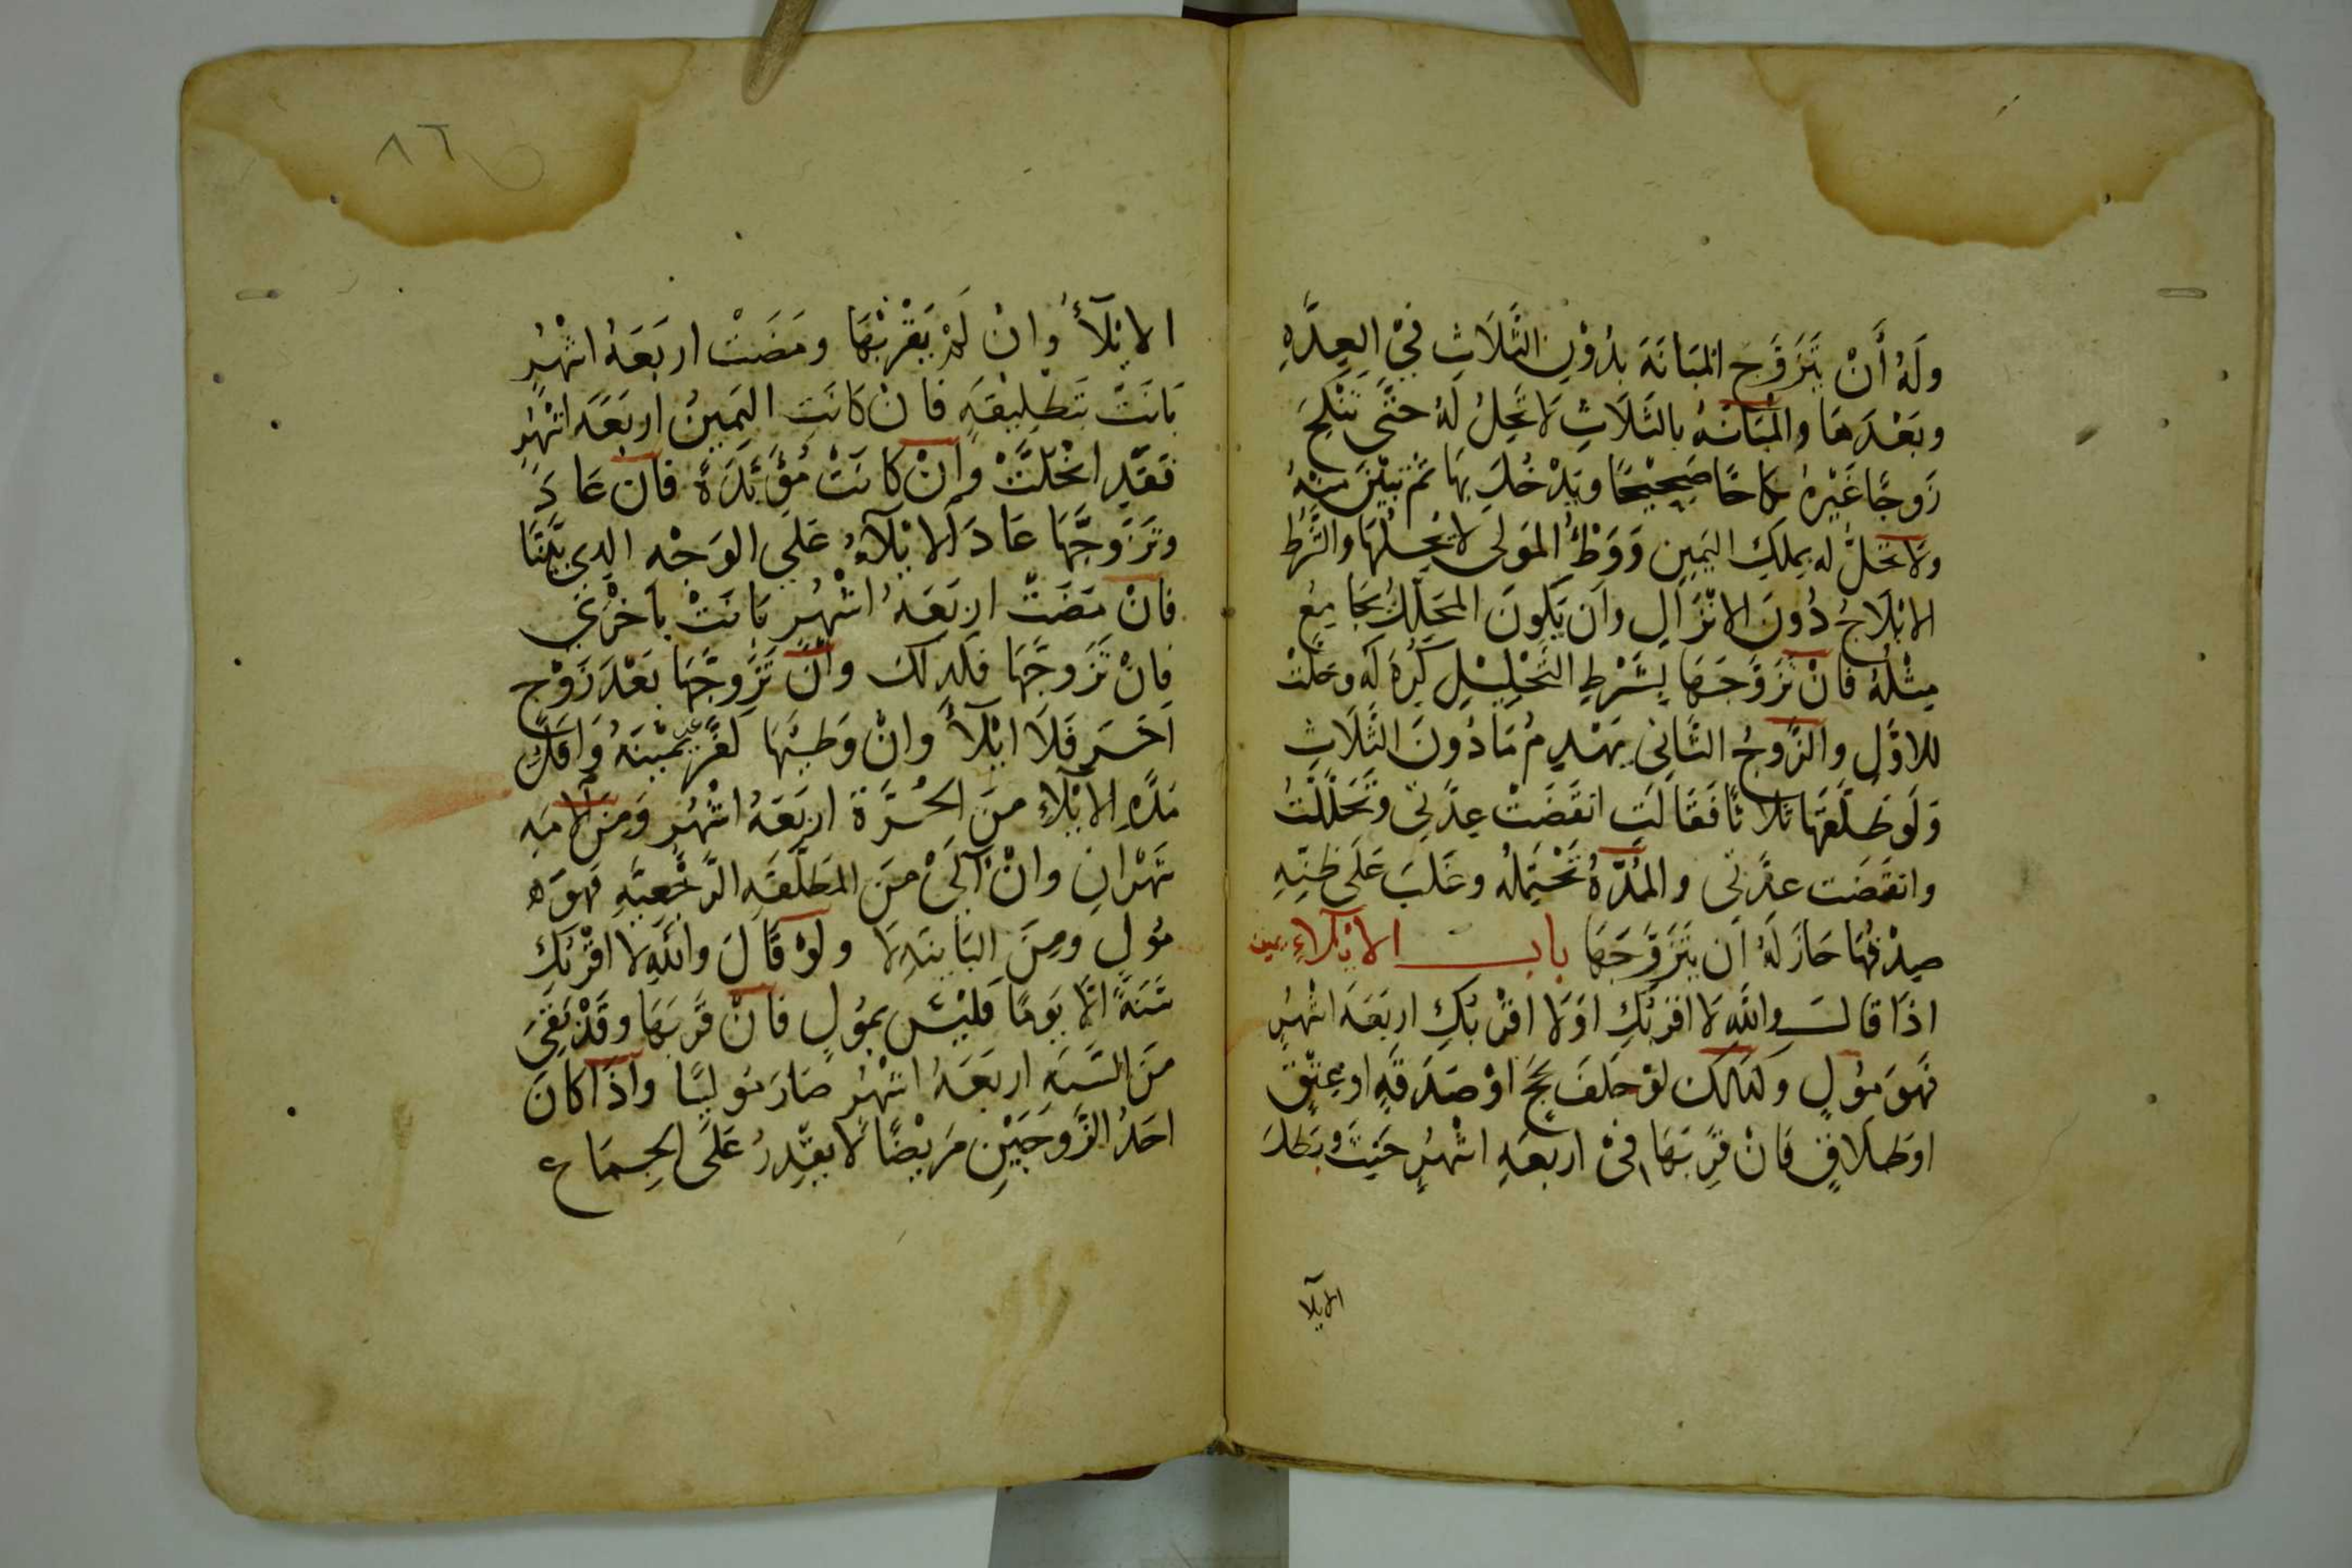 وَلَهُ أَنْ يَتَزَوَّجَ المُبَانَةَ بِدُوْنِ الثَّلَاثِ فِيْ العِدَّهِ
وبَعْدَهَا والمُبَانَهُ بالثَلَاثِ لَا تَحِلُ لَهُ حَتَّى تَنْكِحَ
زَوجًا غَيْرهُ نكاحًا صَحِيْحًا ويَدْخُلَ بِهَا ثمَّ تبيْنَ مِنْهُ
ولَا تحَلُّ له بمِلكِ اليَمِينِ وَوَطْئُ المَولى لا يحُلهَا والشَّرْط
الايْلَاجُ دُونَ الانْزَالِ وان يَكونَ المُحَلِلُ يُجَامِعُ
مِثْلُهُ فَانْ تَزَوَّجَهَا بِشَرْطِ التَّحْلِيْلِ كُرِهَ لَه وَحَلتْ
للاوَّلِ والزَّوجُ الثَّانى يَهْدِمُ مَا دُونَ الثَّلَاثِ
وَلَو طَلَّقَهَا ثلاثًا فَقَالَتِ انقَضَتْ عِدَّتى وتَحَلَّلْتُ
وانقَضَت عِدَّتى والمُدَّةُ تَحْتَمِلُه وغَلبَ عَلَى ظنِّهِ
صِدْقُهَا جَازَ لَهُ أن يَتَزَوَّجَهَا باب الايْلَاءِ يمين
اذَا قالَ واللَّهِ لَا اقْرَبُكِ اوَلَا اقْرَبُكِ اربَعَةَ اشْهُرٍ
فَهوَ مُولٍ وكذلك لوْ حَلفَ بحَجٍّ اوْ صَدَقَةٍ او عِتْقٍ
اوطَلَاقٍ فَانْ قَرِبَهَا فىْ اربَعَهِ اشْهُرٍ حَنِثَ وبَطلَ
الايلا
٨٦
الايْلَآءُ وانْ لَمْ يَقْرَبْهَا ومَضَتْ اربَعَهُ اشْهُرٍ
بَانَتْ بتَطْلِيقَهٍ فانْ كانَتِ اليَمِينُ اربَعَهَ اشْهُرٍ
فَقَدِ انْحَلَّتْ وانْ كانَتْ مُؤَبَّدَةً فان عَادَ
وتَزَوجَّهَا عَادَ الايْلَآءُ عَلى الوَجْهِ الذى بَيَّنَّا
فانْ مَضَتْ اربَعَهُ اشْهُرٍ بَانَتْ باخْرَى
فانْ تَزَوجَّهَا فكَذلكَ وانْ تَزَوجَّهَا بَعْدَ زَوْجٍ
اخَرَ فَلَا ايْلَآءَ وانْ وَطِيَهَا كَفَّرَ عن يَمْينَهُ وَاقَلُّ
مدَّهِ الايْلَاءِ مِنَ الحُرَّةَ اربَعَهُ اشْهُرٍ ومِنَ الامَهِ
شَهْرَانِ وانْ آلَىْ مِنَ المطَلَّقَهِ الرَّجْعِيَّهِ فهوَ
مُولٍ ومِنَ البَاينَهِ لَا ولوْ قَالَ واللَّهِ لا اقْرَبُكِ
سَنَةً الَّا يَومًا فَليْسَ بمُولٍ فانْ قَرِبَهَا وقَدْ بَقِىَ
مِنَ السَّنَهِ اربَعَهُ اشْهُرٍ صَارَ مُوليًا واذَا كانَ
احَدُ الزَّوجَيْنِ مَريْضًا لَا يقْدِرُ عَلَى الجِمَاعِ